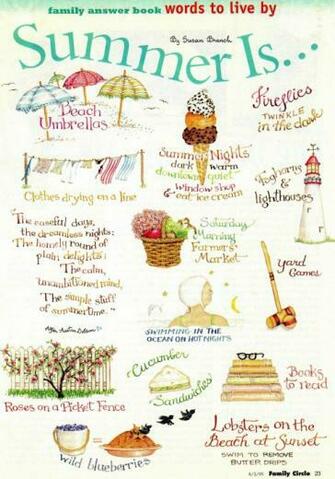 family answer book words to live by
Summer Is...
By Susan Branch
Beach
Umbrellas
Fireflies
TWINKLE
in the dark
Summer Nights
dark & warm
downtown quiet
window shop
& eat ice cream
Clothes drying on a line
Foghorns
&
lighthouses
"The easeful days,
the dreamless nights;
The homely round of
plain delights;
The calm,
unambitioned mind,
The simple stuff
of summertime."
Austin Dobson
Saturday
Morning
Farmers'
Market
yard
Games
SWIMMING IN THE
OCEAN ON HOT NIGHTS
Roses on a Picket Fence
Cucumber
Sandwiches
Books
to read
wild blueberries
Lobsters on the
Beach at Sunset
SWIM TO REMOVE
BUTTER DRIPS
Family Circle 23